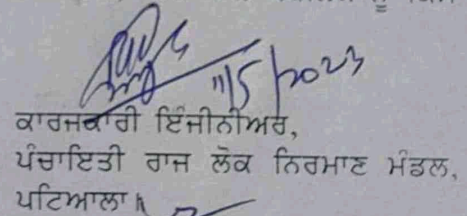 11/5/2023
ਕਾਰਜਕਾਰੀ ਇੰਜੀਨੀਅਰ,
ਪੰਚਾਇਤੀ ਰਾਜ ਲੋਕ ਨਿਰਮਾਣ ਮੰਡਲ,
ਪਟਿਆਲਾ।